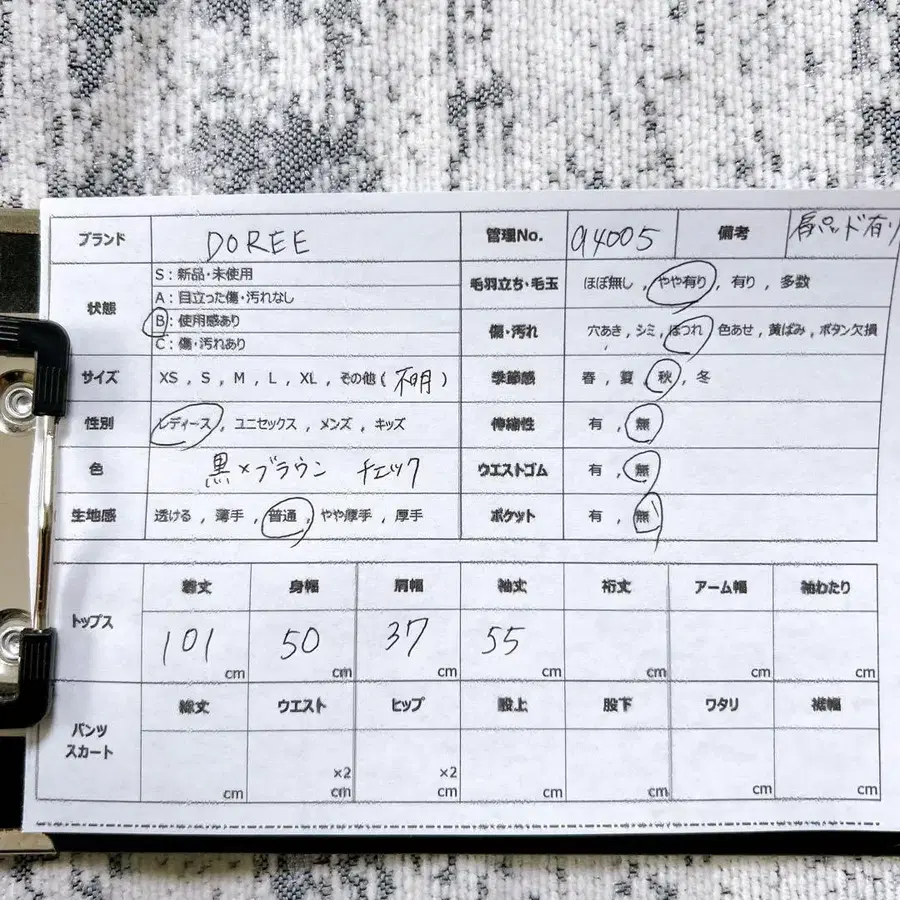 ブランド DOREE 管理No. 94005 備考 肩パッド有り
状態
S：新品・未使用
A：目立った傷・汚れなし
B：使用感あり
C：傷・汚れあり
毛羽立ち・毛玉 ほぼ無し , やや有り , 有り , 多数
傷・汚れ 穴あき , シミ , ほつれ 色あせ , 黄ばみ , ボタン欠損
サイズ XS , S , M , L , XL , その他 ( 不明 ) 季節感 春 , 夏 , 秋 , 冬
性別 レディース , ユニセックス , メンズ , キッズ 伸縮性 有 , 無
色 黒×ブラウン チェック ウエストゴム 有 , 無
生地感 透ける , 薄手 , 普通 , やや厚手 , 厚手 ポケット 有 , 無
トップス
着丈 身幅 肩幅 袖丈 裄丈 アーム幅 袖わたり
101 cm 50 cm 37 cm 55 cm cm cm cm
パンツ
スカート
総丈 ウエスト ヒップ 股上 股下 ワタリ 裾幅
×2 ×2
cm cm cm cm cm cm cm